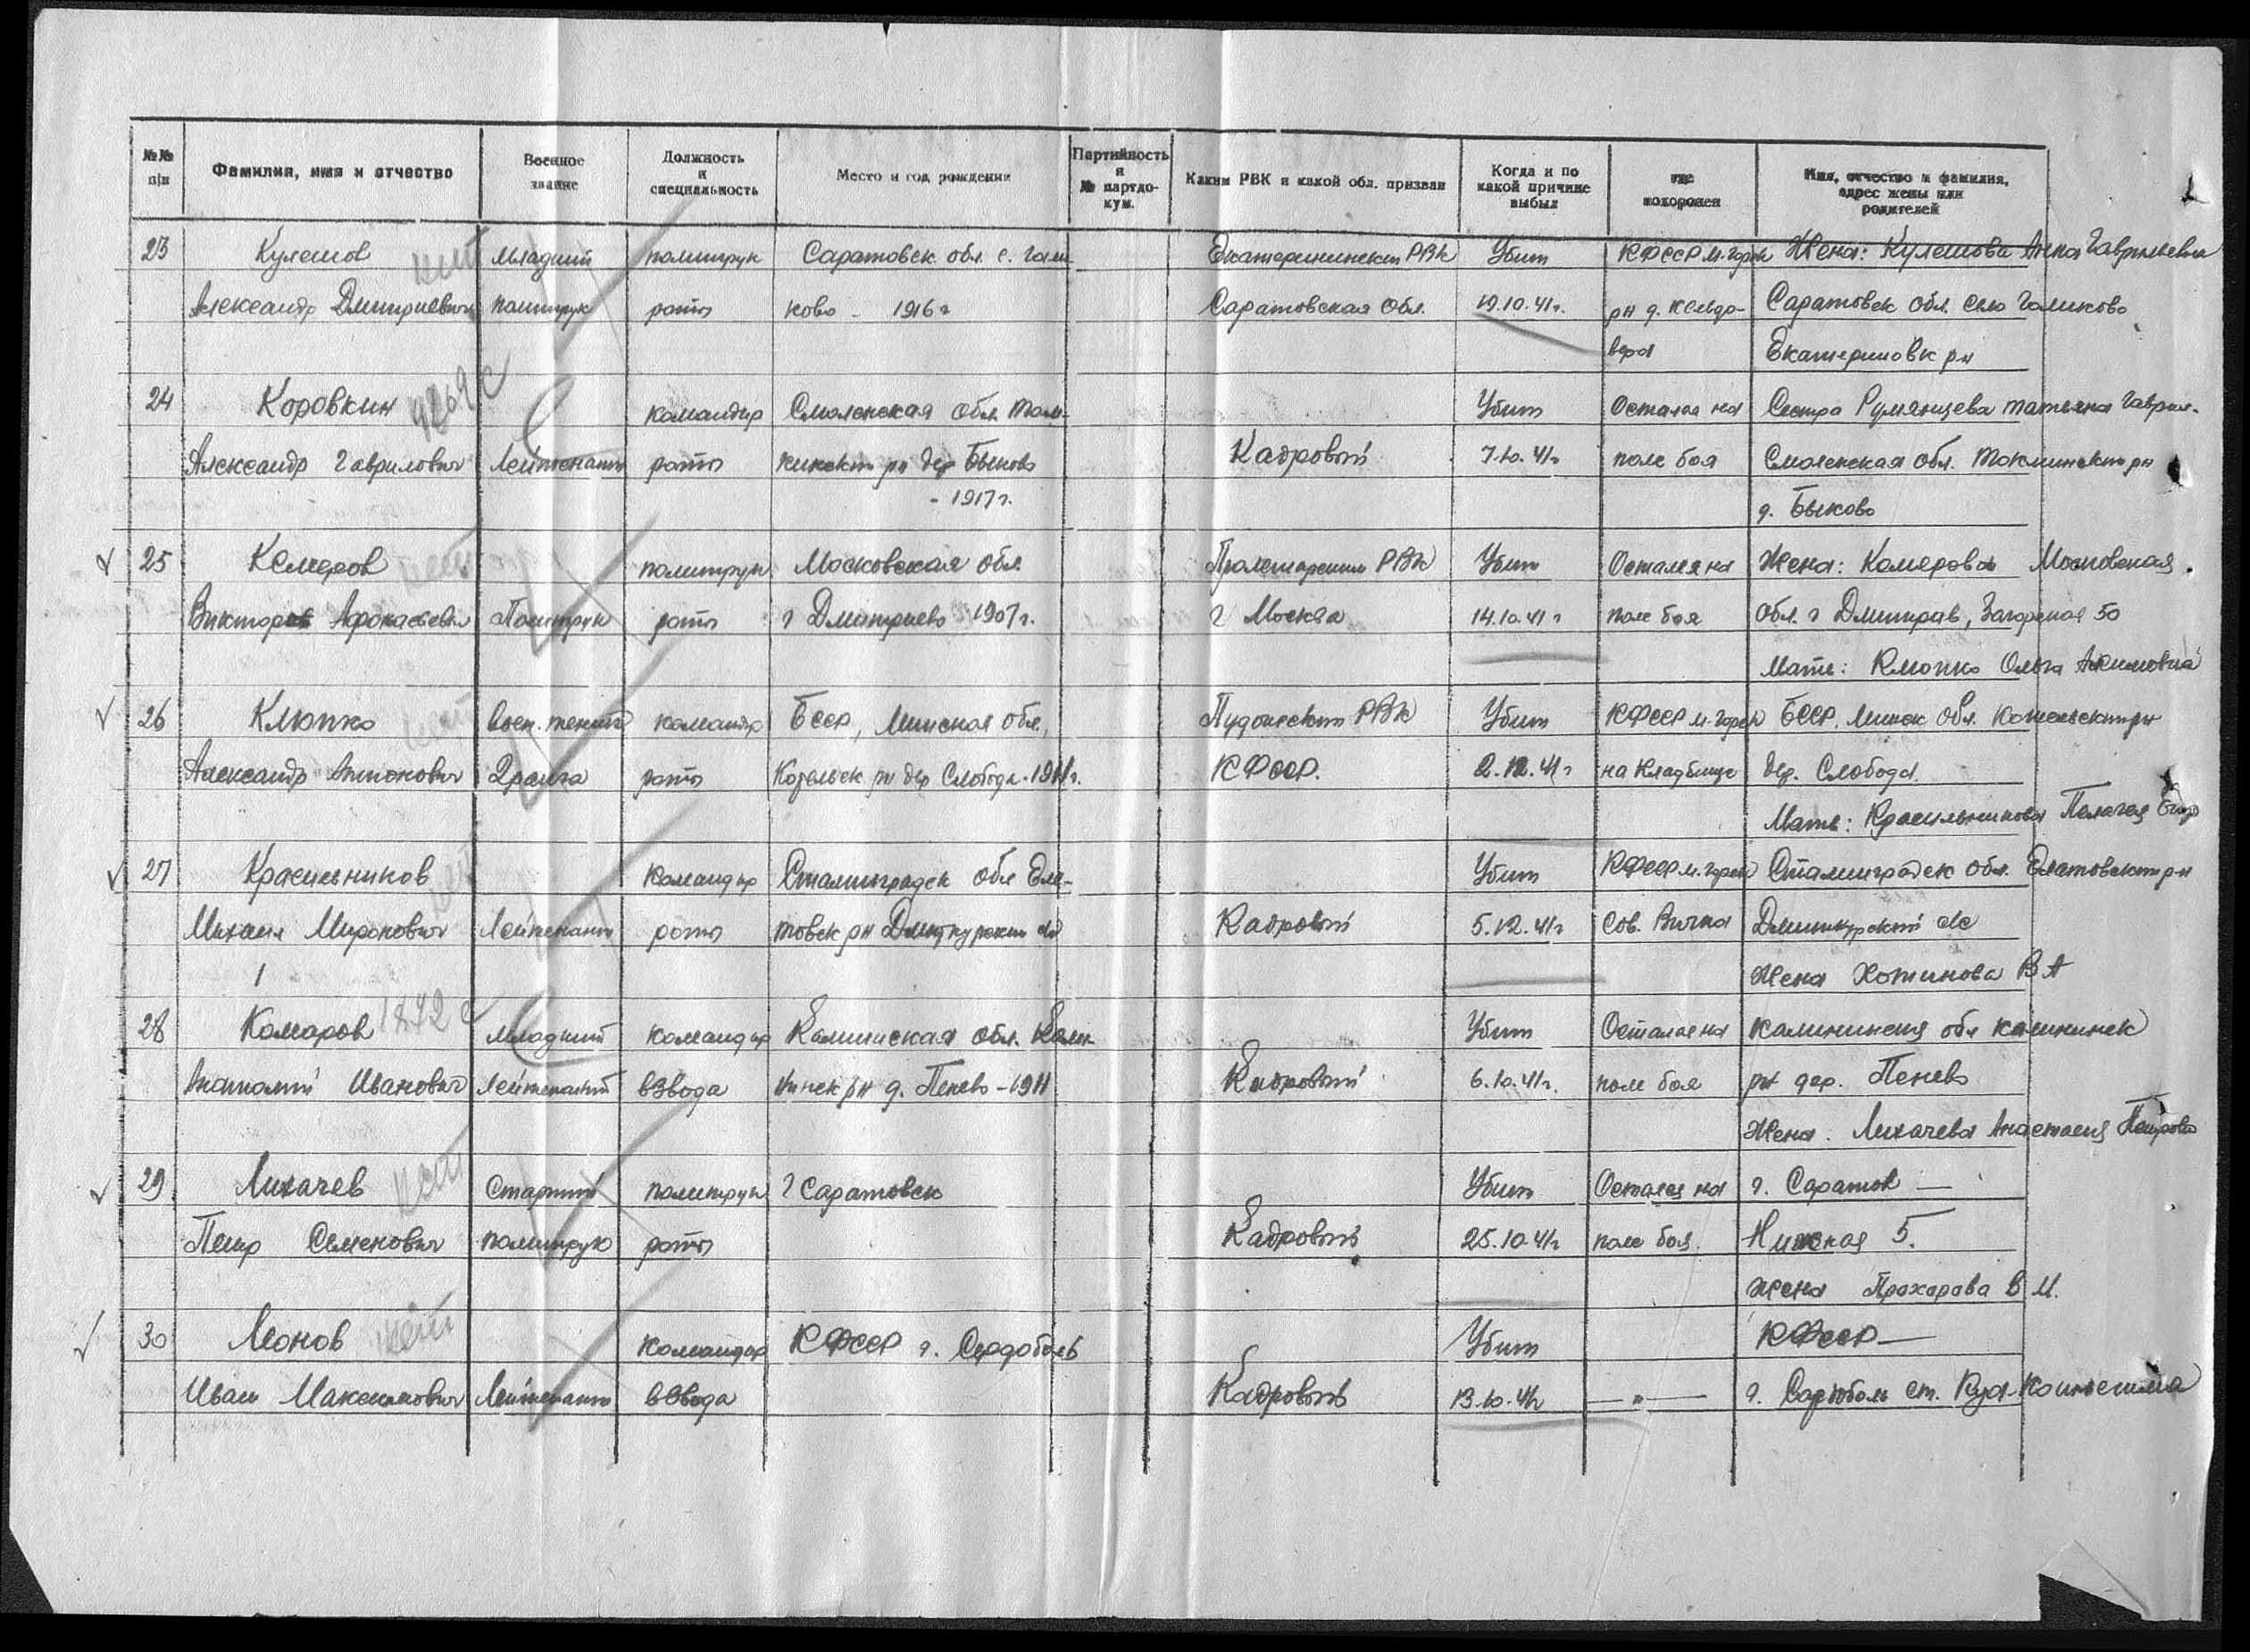 №№ п/п
Фамилия, имя и отчество
Военное звание
Должность и специальность
Место и год рождения
Партийность и № партдокум.
Каким РВК и какой обл. призван
Когда и по какой причине выбыл
где похоронен
Имя, отчество и фамилия, адрес жены или родителей
23 Кулешов Младший политрук Саратовск обл. с. Гали- Екатерининским РВК Убит КФССР М. Горск Жена: Кулешова Анна Гаврильевна
Александр Дмитриевич политрук роты ково - 1916 г Саратовская Обл. 19.10.41г. рн д. Саратовск обл. село Галиково
Екатериновк рн
24 Коровкин 4269с командир Смоленская обл. Убит Остался на Сестра Румянцева Татьяна Гаврил.
Александр Гаврилович Лейтенант роты рн дер Быково Кадровый 7.10.41г поле боя Смоленская обл. рн
- 1917 г. д. Быково
25 Кемеров нет политрук Московская обл Пролетарским РВК Убит Остался на Жена: Комерова Московская
Виктор Афонасьевич Политрук роты г Дмитриево 1907 г. г Москва 14.10.41 г поле боя обл. г Дмитров, Загорская 50
Мать: Клюпко Ольга Акимовна
26 Клюпко нет Воен. техник командир БССР, Минская обл., Пудожским РВК Убит КФССР М. Горск БССР, Минск обл.
Александр Антонович 2 ранга роты рн дер Слобода - 1911г. КФССР. 2.12.41 г на кладбище дер. Слобода.
Мать: Красильникова Пелагея
27 Красильников нет Командир Сталинградск обл Ела- Убит КФССР М. Горск Сталинградск обл. Елатовским рн
Михаил Миронович Лейтенант роты товск рн Кадровый 5.12.41г Сов. с/с
Жена Хотинова В А
28 Комаров 1872 с Младший командир Калининская обл. Кали- Убит Остался на калининская обл калининск
Анатолий Иванович Лейтенант взвода нинск рн д. Пенево - 1911 Кадровый 6.10.41г. поле боя рн дер. Пенево
Жена. Лихачева Анастасия Петровна
29 Лихачев нет Старший политрук г Саратовск Убит Остался на г. Саратов —
Петр Семенович политрук роты Кадровый 25.10.41г поле боя. Нижняя 5.
Жена Прохарова В И.
30 Леонов нет командир КФССР г. Сердоболь Убит КФССР —
Иван Максимович Лейтенант взвода Кадровый 13.10.41г — " — г. ст.